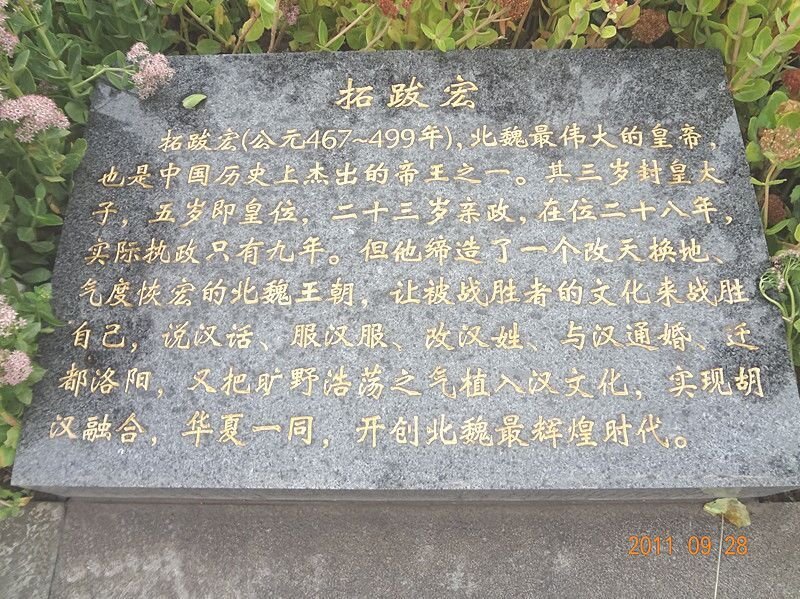 拓跋宏
拓跋宏(公元467~499年),北魏最伟大的皇帝,
也是中国历史上杰出的帝王之一。其三岁封皇太
子,五岁即皇位,二十三岁亲政,在位二十八年,
实际执政只有九年。但他缔造了一个改天换地、
气度恢宏的北魏王朝,让被战胜者的文化来战胜
自己,说汉话、服汉服、改汉姓、与汉通婚、迁
都洛阳,又把旷野浩荡之气植入汉文化,实现胡
汉融合,华夏一同,开创北魏最辉煌时代。
2011 09 28